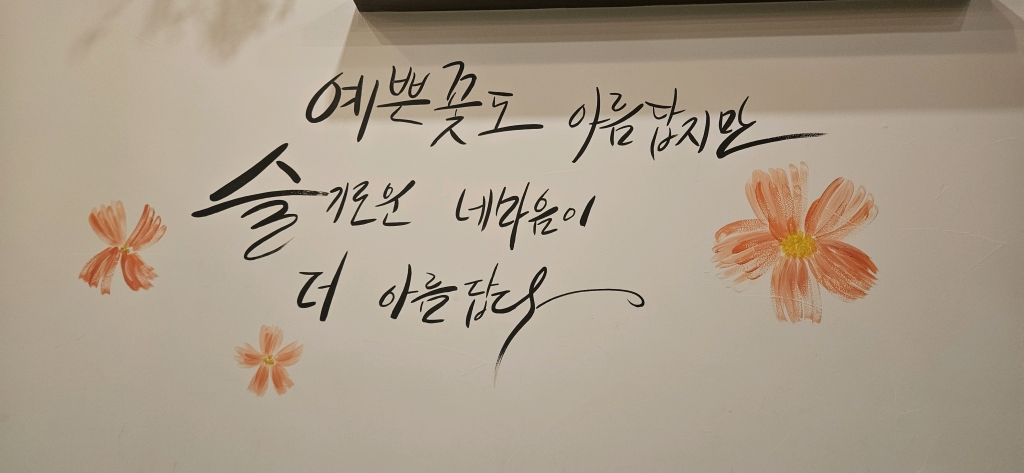 예쁜꽃도 아름답지만
슬기로운 네마음이
더 아름답다